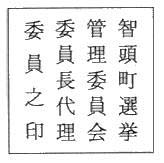 智頭町選挙
管理委員会
委員長代理
委員之印